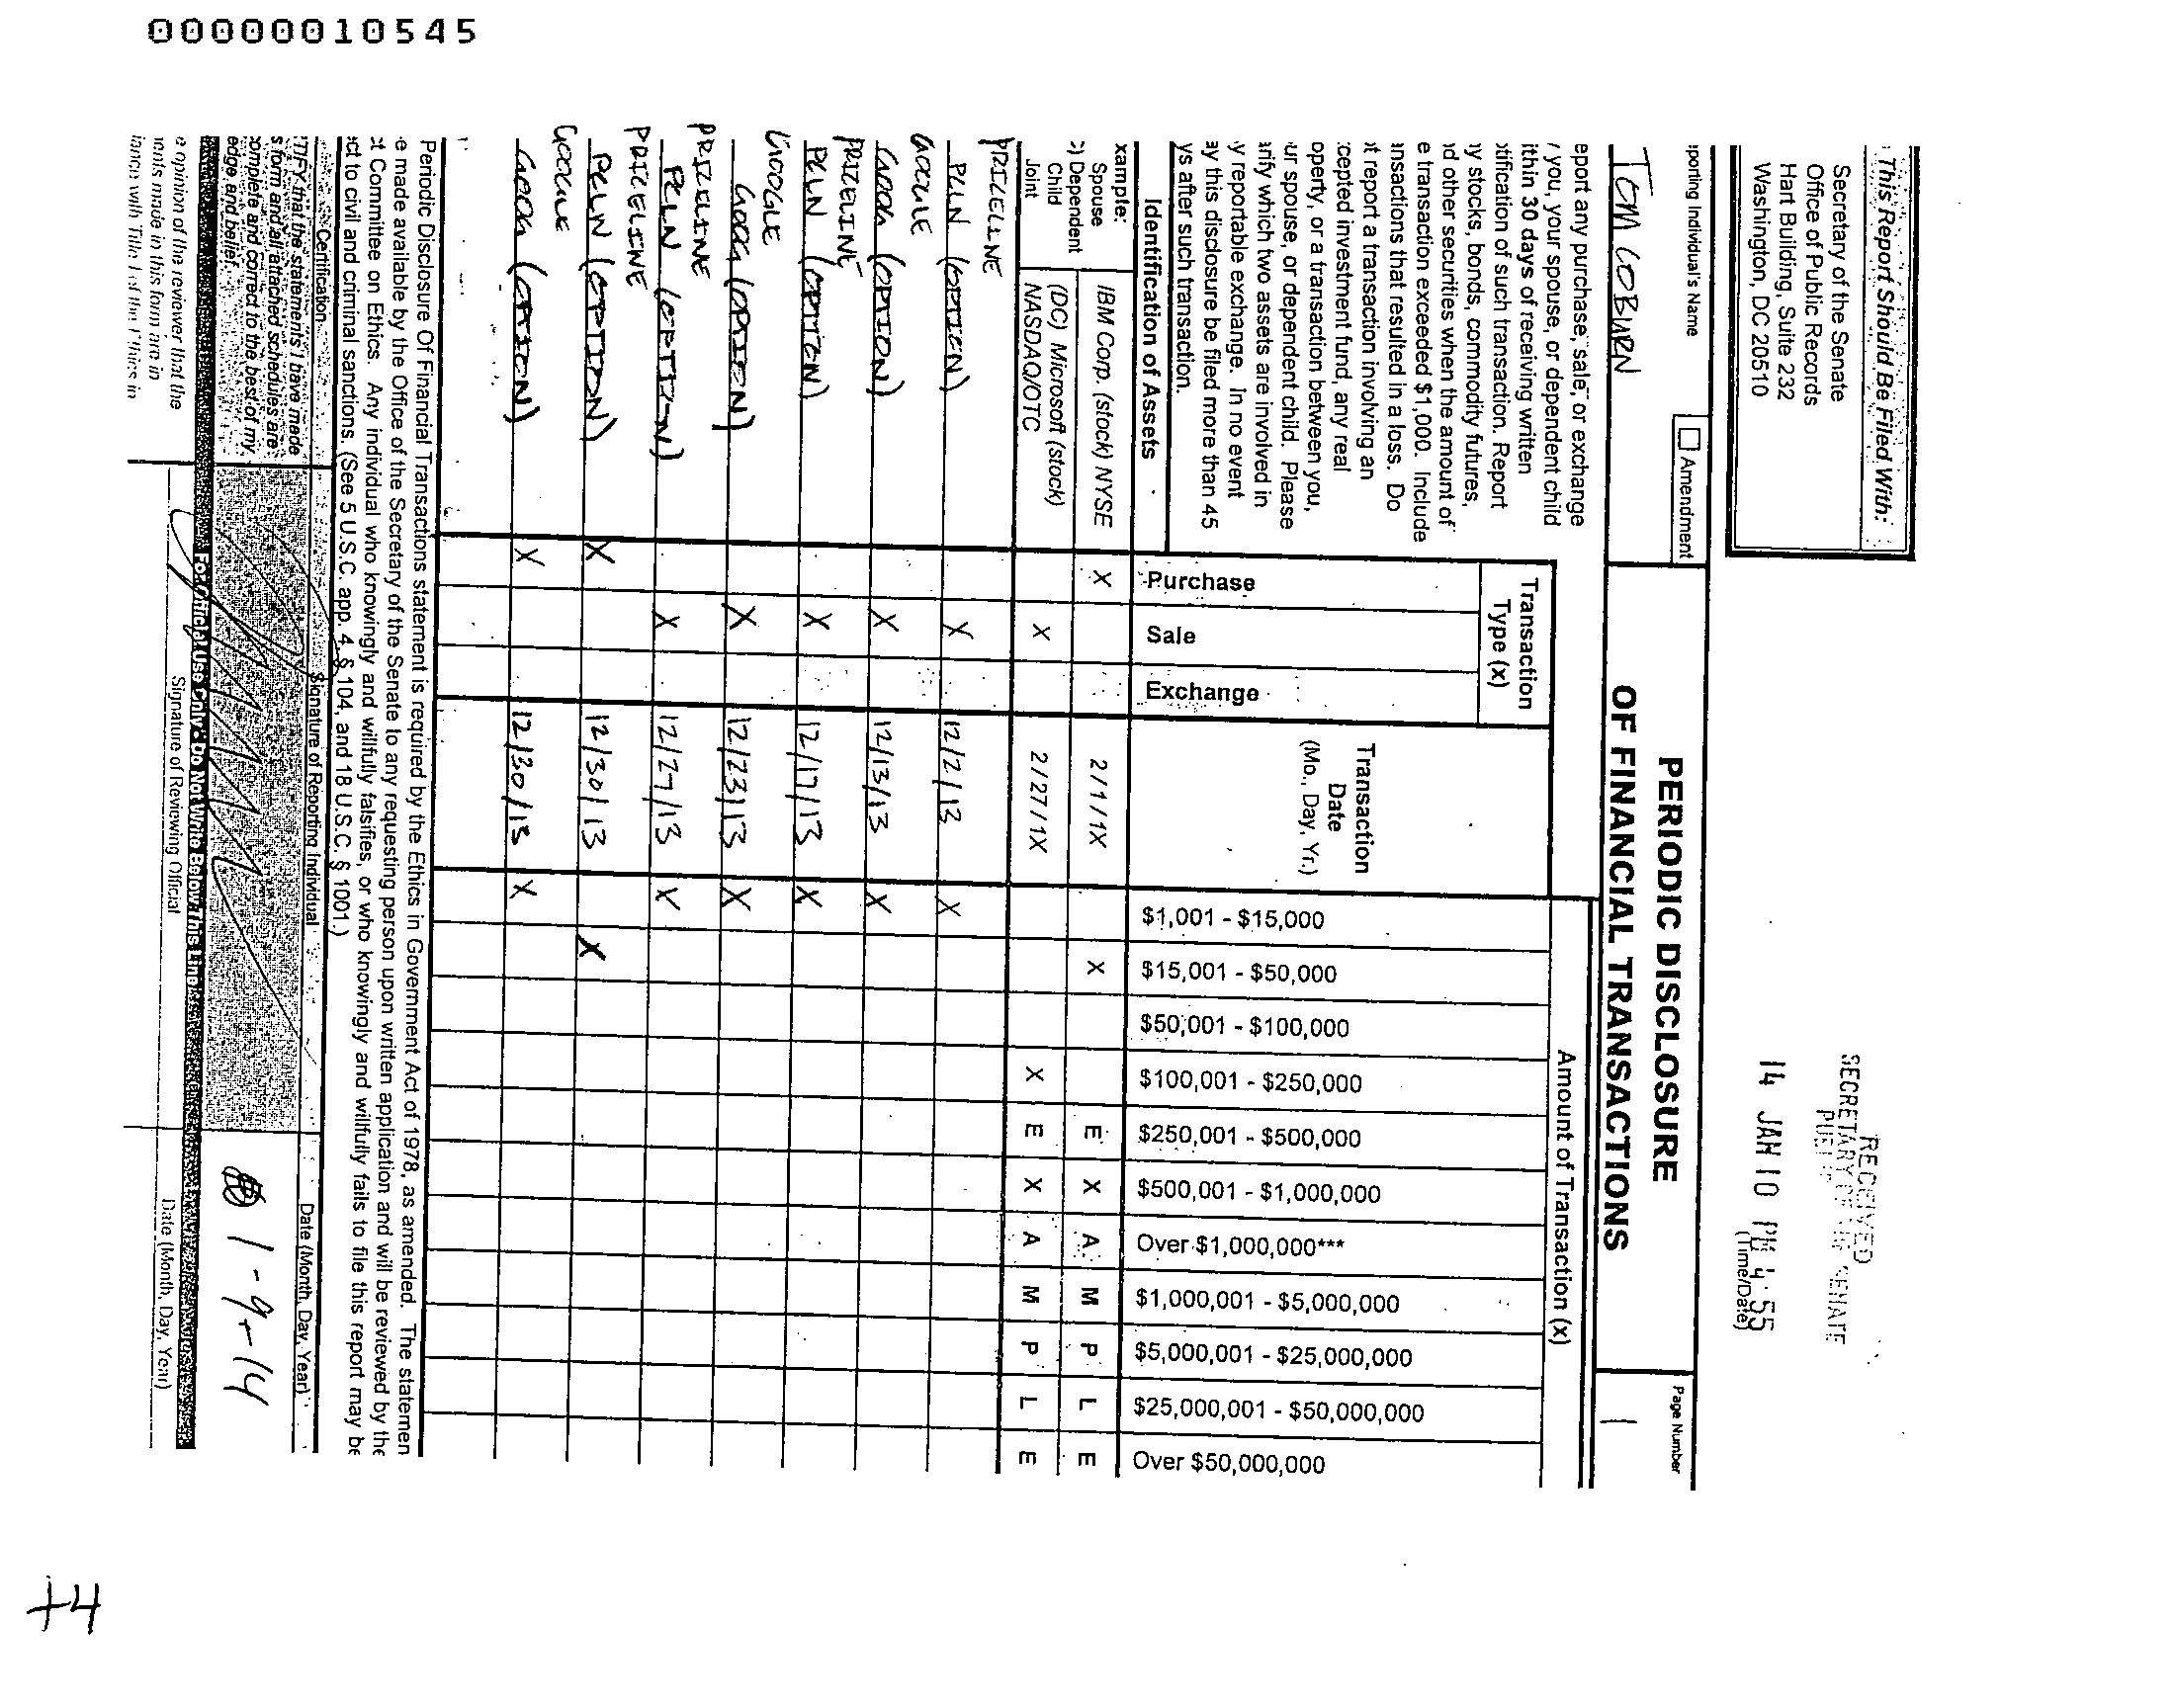 00000010545
This Report Should Be Filed With:
Secretary of the Senate
Office of Public Records
Hart Building, Suite 232
Washington, DC 20510
RECEIVED
SECRETARY OF THE SENATE
14 JAN 10 PM 4:55
(Time/Date)
porting Individual's Name
Amendment
TOM COBURN
PERIODIC DISCLOSURE
OF FINANCIAL TRANSACTIONS
Page Number
1
eport any purchase, sale, or exchange
you, your spouse, or dependent child
otification of such transaction. Report
ithin 30 days of receiving written
ny stocks, bonds, commodity futures,
nd other securities when the amount of
e transaction exceeded $1,000. Include
ansactions that resulted in a loss. Do
ot report a transaction involving an
cepted investment fund, any real
operty, or a transaction between you,
ur spouse, or dependent child. Please
arify which two assets are involved in
y reportable exchange. In no event
ay this disclosure be filed more than 45
ys after such transaction.
Identification of Assets
Transaction
Type (x)
Purchase
Sale
Exchange
Transaction
Date
(Mo., Day, Yr.)
Amount of Transaction (x)
$1,001 - $15,000
$15,001 - $50,000
$50,001 - $100,000
$100,001 - $250,000
$250,001 - $500,000
$500,001 - $1,000,000
Over $1,000,000***
$1,000,001 - $5,000,000
$5,000,001 - $25,000,000
$25,000,001 - $50,000,000
Over $50,000,000
xample:
Spouse
) Dependent
Child
Joint
IBM Corp. (stock) NYSE X 2/1/1X X E X A M P L E
(DC) Microsoft (stock)
NASDAQ/OTC X 2/27/1X X E X A M P L E
PRICELINE
PCLN (OPTION) X 12/2/13 X
GOOGLE
GOOG (OPTION) X 12/13/13 X
PRICELINE
PCLN (OPTION) X 12/17/13 X
GOOGLE
GOOG (OPTION) X 12/23/13 X
PRICELINE
PCLN (OPTION) X 12/27/13 X
PRICELINE
PCLN (OPTION) X 12/30/13 X
GOOGLE
GOOG (OPTION) X 12/30/13 X
Periodic Disclosure Of Financial Transactions statement is required by the Ethics in Government Act of 1978, as amended. The statemen
e made available by the Office of the Secretary of the Senate to any requesting person upon written application and will be reviewed by the
ct Committee on Ethics. Any individual who knowingly and willfully falsifies, or who knowingly and willfully fails to file this report may be
ect to civil and criminal sanctions. (See 5 U.S.C. app. 4, § 104, and 18 U.S.C. § 1001.)
Certification
Signature of Reporting Individual
Date (Month, Day, Year)
TIFY that the statements I have made
s form and all attached schedules are
omplete and correct to the best of my
edge and belief.
1-9-14
For Official Use Only - Do Not Write Below This Line
e opinion of the reviewer that the
nents made in this form are in
iance with Title I of the Ethics in
Signature of Reviewing Official
Date (Month, Day, Year)
+4